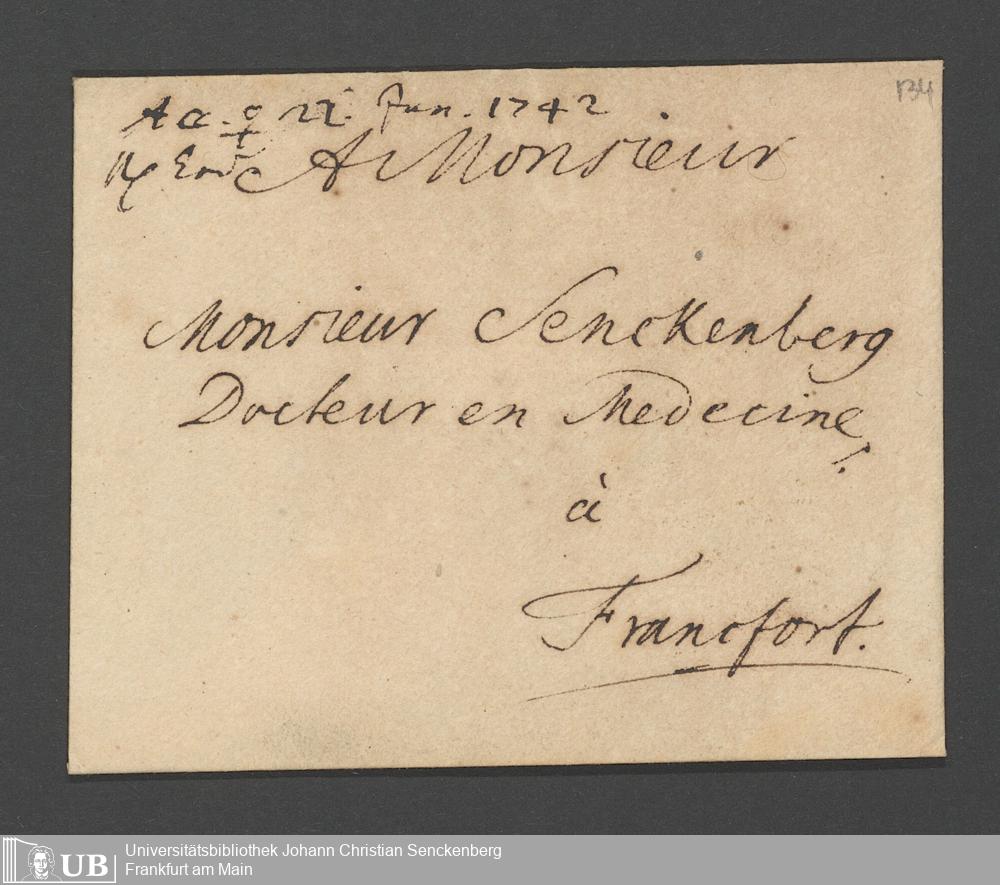 Acc. ♀ 22. Jun. 1742
134
A Monsieur
Monsieur Senckenberg
Docteur en Medecine
à
Francfort.
UB
Universitätsbibliothek Johann Christian Senckenberg
Frankfurt am Main